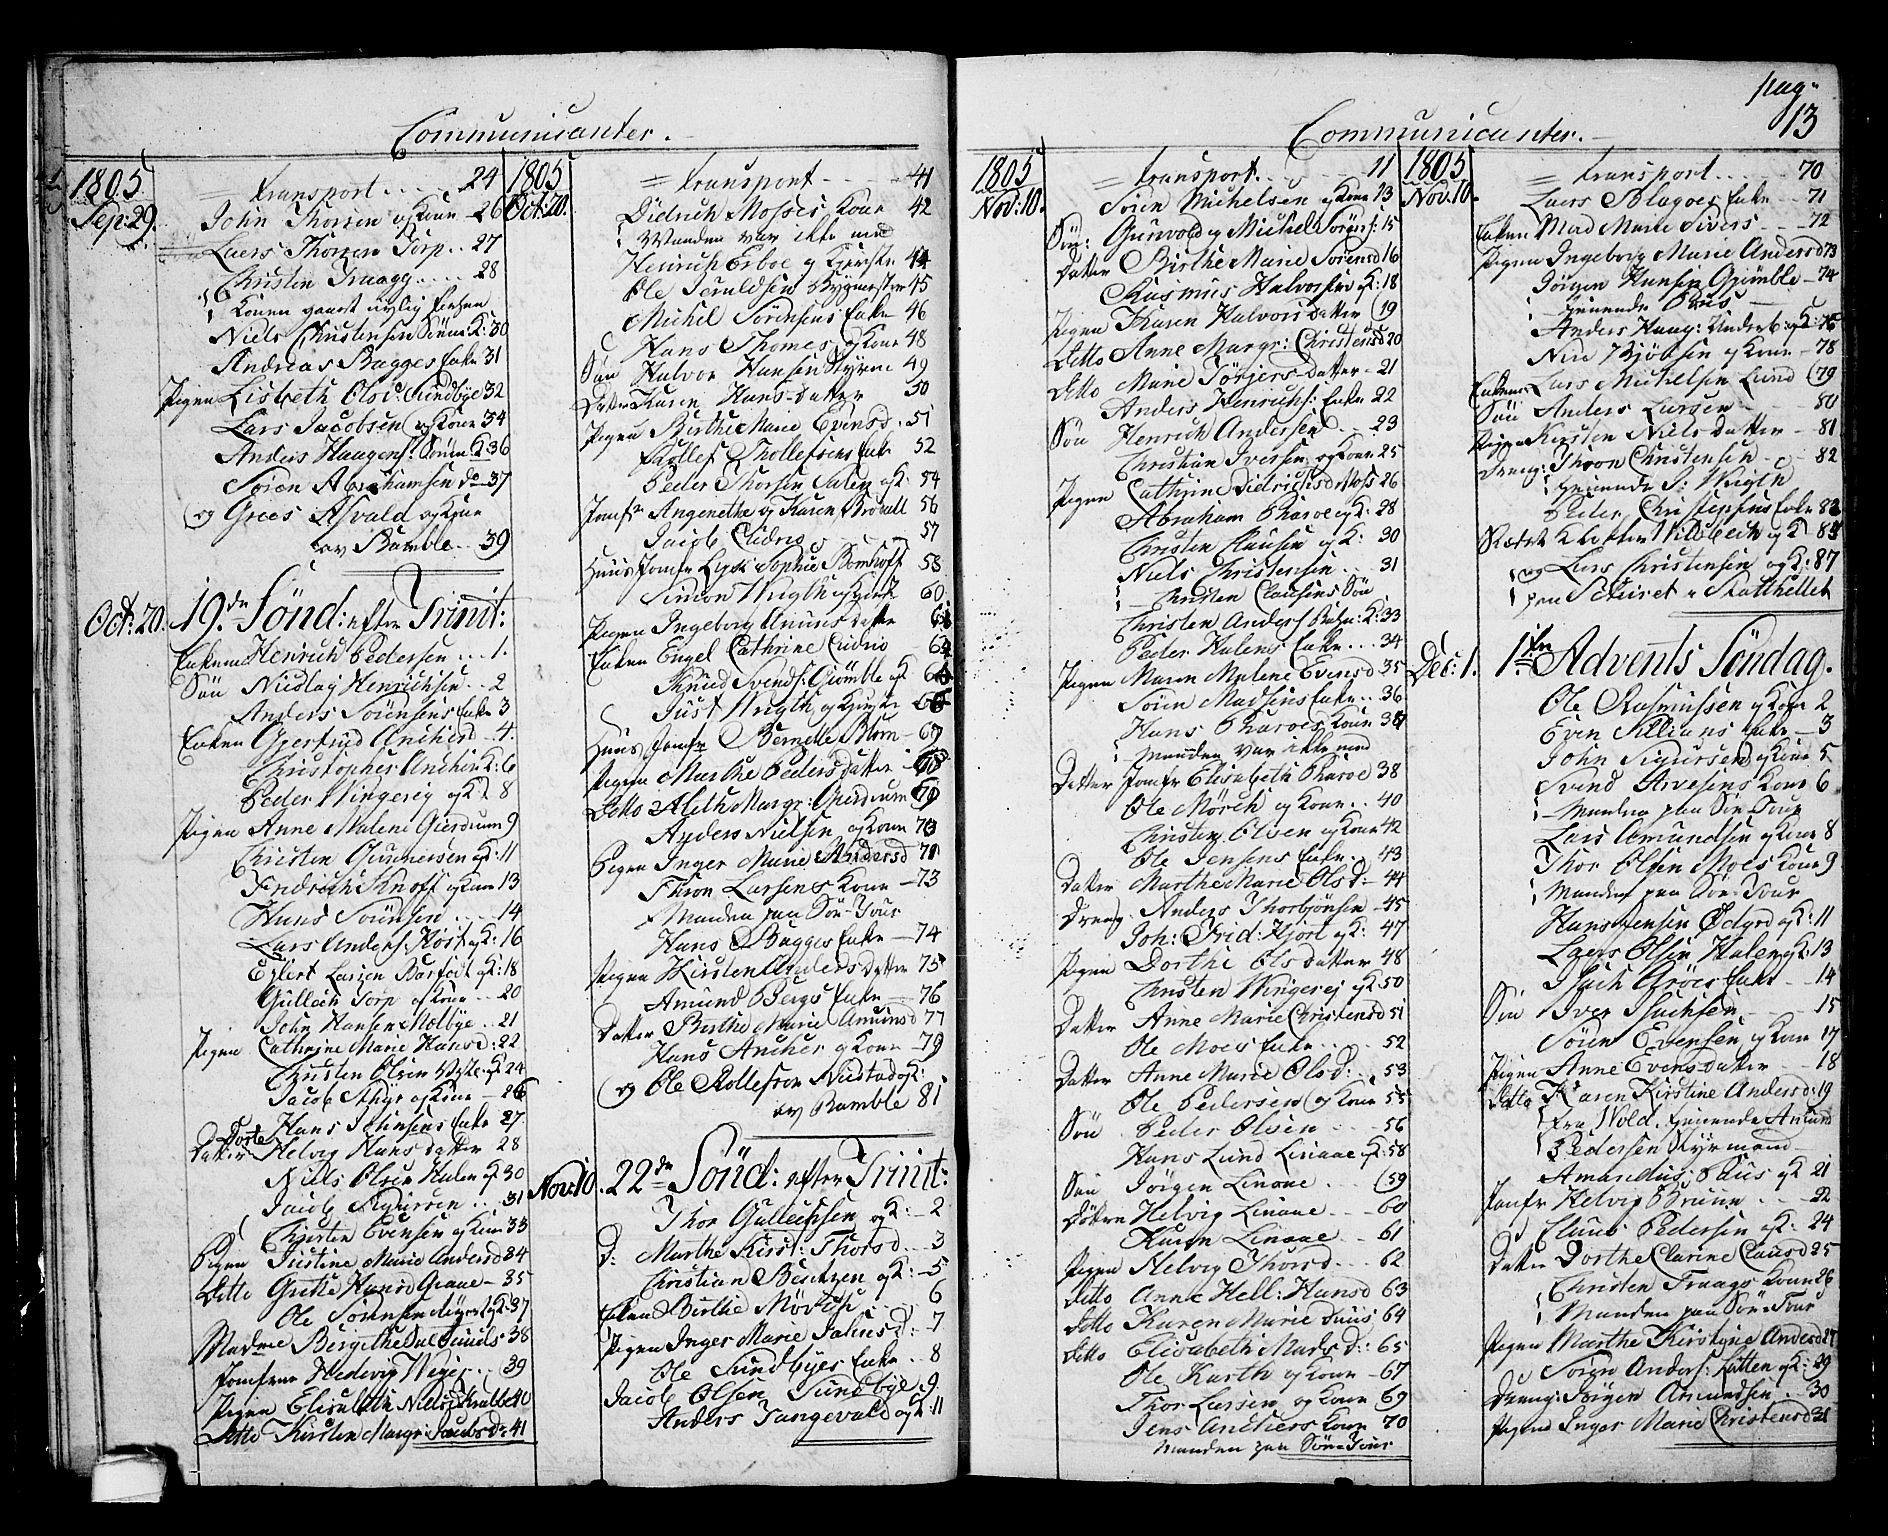 Communicanter.
1805
Sep: 29.
= Transport .... 24
John Thorsen og Kone - 26
Laers Thorsen Torp .. 27
Christen Traagg .... 28
Konen
Niels Christensen Søum K: 30
Andreas Bagges Enke 31
Pigen Lisbeth Olsd: Sundbye 32
Lars Jacobsen og Kone 34
Anders Haagens: Søum K 36
Søren Abrahamsen do 37
og Grees Asvald og Kone
av Bamble .. 39
Oct: 20. 19de Sönd: efter Trinit:
Enkem Henrich Pedersen ... 1.
Søn Nicolay Henrichsen .. 2
Anders Sörensens Enke 3
Enken Gjertrud Ancherd - 4.
Christopher Ancher K: 6
Peder Wingereig og K 8
Pigen Anne Malene Gierdrum 9
Christen Gunnersen og K: 11
Fredrich Knoff og Kone 13
Hans Sörensen .... 14
Lars Anders: Høst og K: 16
Eylert Larsen Barfodt og K: 18
Gullich Torp og Kone .. 20
John Hansen Melbye .. 21
Pigen Cathrine Marie Hansd: 22
Christen Olsen og K 24
Jacob Styr og Kone - 26
Hans Johnsens Enke 27.
Datter Dorte Helvig Hans datter 28
Niels Olsen Halen og K: 30
Jacob Sigursen .. 31
Christen Evensen og Kone 33
Pigen Justine Marie Andersd 34
Ditto Grethe Hansd Graae - 35
Ole Sörensen og K: 37
Madme Bergithe Dal Juuls 38
Jomfrue Hedevig Weyer .. 39
Pigen Elisabeth Niels: Krabbe 40
Ditto Kirsten Margr: Jacobsd: 41
1805
Oct: 20.
= Transport ... 41
Didrich Mosses Kone 42
Manden var ikke med
Heinrich Erboe og Kjerste 44
Ole Jeruldsen Bygmester 45
Michel Sörensens Enke 46
Hans Thomes. og Kone 48
Søn Halvor Hansen Styrm 49
Datter Karen Hans-datter 50
Pigen Birthe Marie Evensd. 51
Rollef Thollefsens Enke 52
Peder Thorsen Salen og K: 54
Jomfr Angenethe og Karen Brövall 56
Jacob Cudrio 57
Huus Jomfr Lyse Sophie Bomhoff 58
Simon Wrigth og Kjerste 60
Pigen Ingeborg Amunds datter 61
Enken Engel Cathrine Cudrio - 62
Knud Svends: Gjømble og K 64
Just Wrigth og Kjerste 66
Huus Jomfr Bernette Blom - 67
Pigen Marthe Pedersdatter 68
Ditto Aleth Margr: Gierdrum 69
Anders Nielsen og Kone 70
Pigen Inger Marie Andersd 71
Thron Larsens Kone - 73
Manden paa Søe-Tour
Hans Bagges Enke - 74
Pigen Kirsten Anders datter 75
Amund Bergs Enke - 76
Datter Birthe Marie Amunsd 77
Hans Ancher og Kone - 79
og Ole Rollefsen Nustad og K:
av Bamble 81
Nov: 10. 22de Sönd: efter Trinit:
Thor Gullichsen og K: - 2
D: Marthe Kirst: Thorsd .. 3
Christian Bentzen og K: - 5
Enken Birthe 6
Pigen Inger Marie Salvesd: - 7
Ole Sundbyes Enke .. 8
Jacob Olsen Sundbye 9
Anders Tangevald og K: 11
pag:
13
Communicanter.
1805
Nov: 10.
= Transport .... 11
Sören Michelsen og Kone 13
Søn: Gunvold og Michel Sörens: 15
Datter Birthe Marie Sörensd 16
Rasmus Halvorsen og K: 18
Pigen Karen Halvors datter 19
Ditto Anne Margr: Christensd 20
Ditto Marie Törjers datter - 21
Anders Henrichs: Enke 22
Søn Henrich Andersen .. 23
Christian Iversen og Kone 25
Pigen Cathrine Didrichsd Moss 26
Abraham Pharoe og K: 28
Christen Clausen og K: 30
Niels Christensen .. 31
Christen Clausens Søn
Christen Anders Bahn: K: 33
Peder Halens Enke ... 34
Pigen Maren Malene Evensd 35
Sören Madsens Enke .. 36
Hans Pharoes Kone 37
Manden var ikke med
Datter Jomfr Elisabeth Pharoe 38
Ole Mörch og Kone .. 40
Christen Olsen og Kone 42
Ole Jensens Enke . 43
Datter Marthe Marie Ols d: 44
Dreng Anders Thorbjönsen - 45
Joh: Frid: Hjort og K: 47
Pigen Dorthe Olsdatter 48
Christen Wingerej og K 50
Datter Anne Marie Christensd 51
Ole Moes Enke .... 52
Datter Anne Marie Ols d: .. 53
Ole Pedersen og Kone 55
Søn Peder Olsen ... 56
Hans Lund Linaae og K: 58
Søn Jörgen Linaae ... 59
Dotter Helvig Linaae ... 60
Karen Linaae .. 61
Pigen Helvig Thorsd .. 62
Ditto Anne Hell: Hansd 63
Ditto Karen Marie Duus 64
Ditto Elisabeth Mads d: 65
Ole Karth og Kone - 67
Thor Larsen og Kone 69
Jens Anchers Kone 70
Manden paa Søe-Tour
1805
Nov: 10.
= Transport ... 70
Laers Blagoes Enke .. 71
Enken Mad Marie Sivers .... 72
Pigen Ingeborg Marie Andersd 73
Jörgen Hansen Gjömble - 74
tjenende Paus
Anders Haag: Underb: og K: 76
Niri Bjönsen og Kone - 78
Enkem Lars Michelsen Lund 79
Søn Anders Larsen ... 80
Pigen Kirsten Niels datter - 81
Dreng: Thron Christensen .. 82
tjenende S: Wrigth
Peder Christensens Enke 83
Klokker Wildbech og K 85
og Lars Christensen og K: 87
paa Schiret v Stathellet
Dec: 1. 1ste Advents Søndag.
Ole Rasmussen og Kone 2
Even Kilians Enke - 3
John Sigursen og Kone 5
Svend Arvesens Kone 6
Manden paa Søe Tour
Lars Amundsen og Kone 8
Thor Olsen Moes Kone 9
Manden paa Søe-Tour
Hans Jensen Ødegrd og K: 11
Laers Olsen Halen og K: 13
Isach Gröes Enke .. 14
Søn Iver Isachsen .... 15
Sören Evensen og Kone 17
Pigen Anne Evensdatter .. 18
Ditto Karen Kirstine Andersd: 19
fra Wold, tjenende Amund
Pedersen Styrmand
Amandus Paus og K 21
Jomfr Helvig Bruun ... 22
Claus Pedersen og K: 24
Datter Dorthe Clarine Clausd 25
Christen Traags Kone 26
Manden paa Søe-Tour
Pigen Marthe Kirstine Andersd 27
Sören Anders: Putten og K: 29
Dreng: Jörgen Amundsen .. 30
Pigen Inger Marie Christensd 31